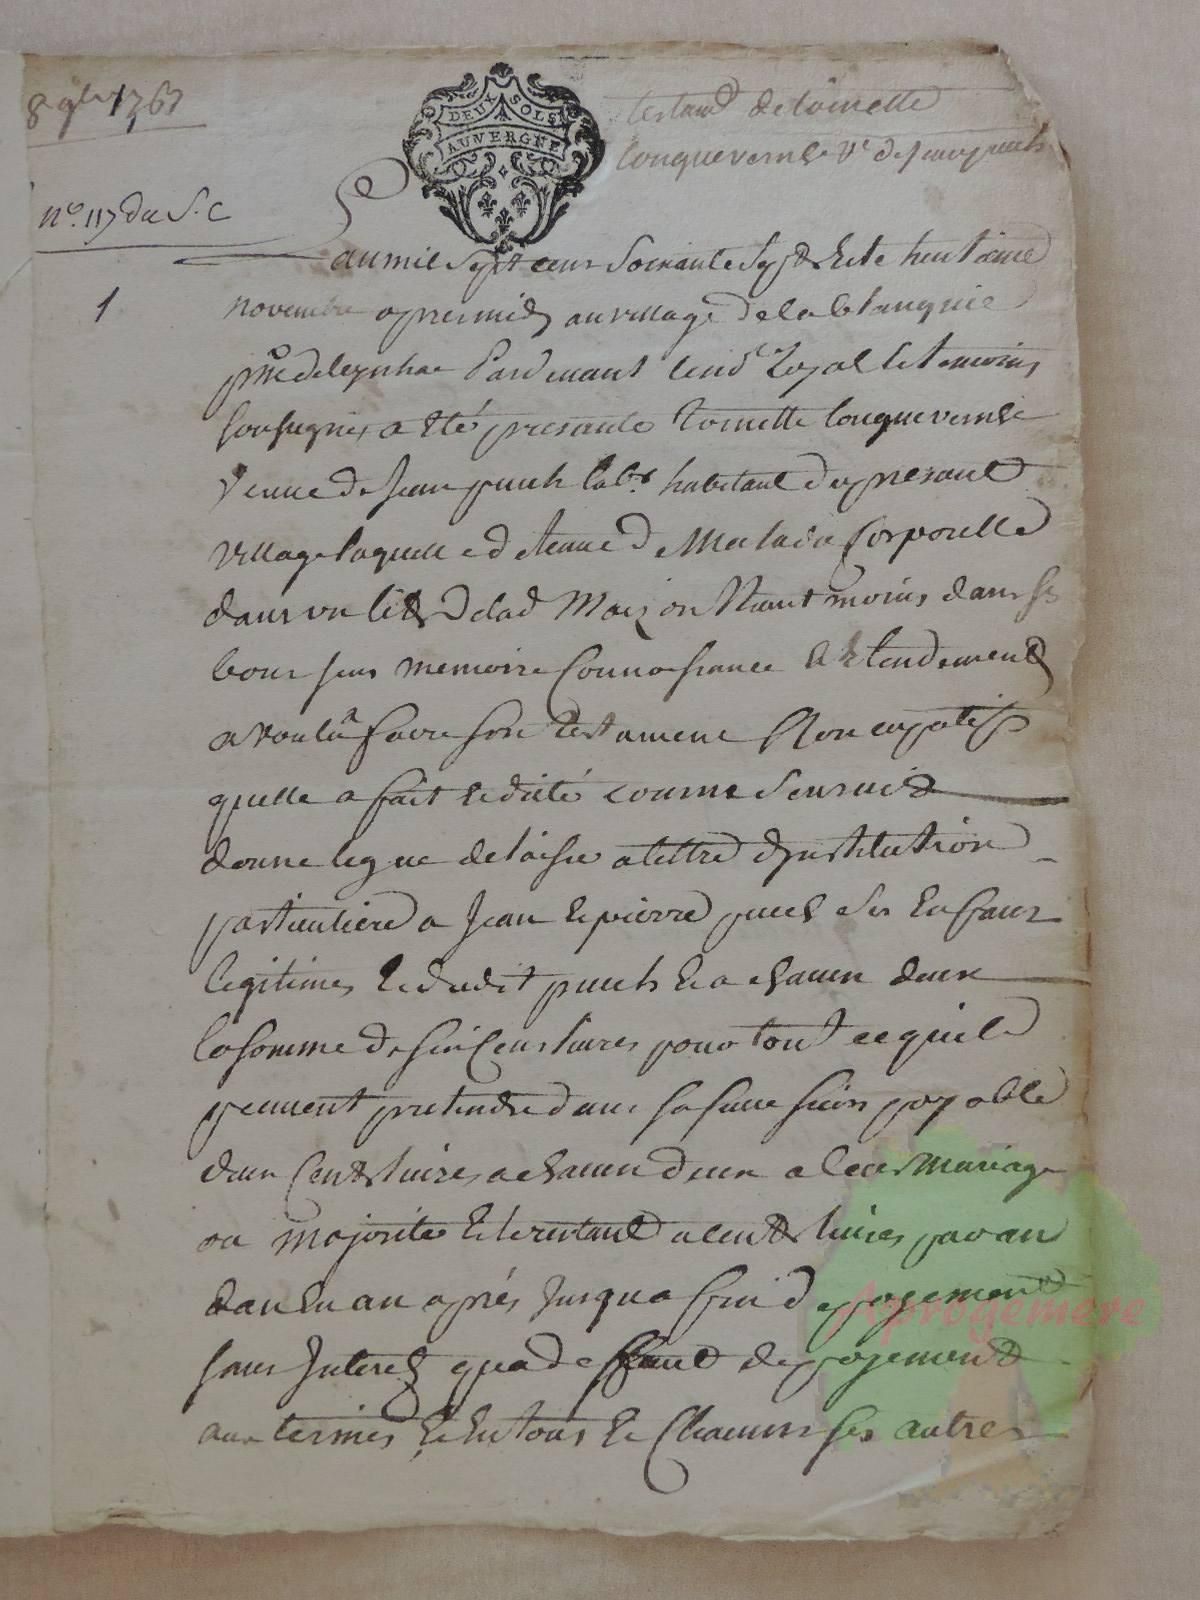 8 9bre 1767
DEUX SOLS
AUVERGNE
testamt de toinette
Longuevernhe Ve de jean puech
no. 117 du S. C
1
L'an mil sept cens soixante sept & le huitieme
novembre apres midy au village de la blanquie
psse de leynhac Pardevant le no.re Royal & temoins
soussignes a été presante Toinette Longuevernhe
Veuve de jean puech labr. habitant du presant
village laquelle detenue de Maladie Corporelle
dans un lit de lad Maizon Neant moins dans ses
bons sens memoire Connoissance & Entendement
a voulu faire son testament Non cupatif
quelle a fait & dicté comme sensuit
donne legue delaisse a tittre dinstitution
particuliere a Jean & pierre puech ses Enfans
legitimes & dudit puech & a chacun deux
la somme de six Cens livres pour tout ce quils
peuvent pretendre dans sa succession payable
dun Cent livres a chacun deux a leur Mariage
ou majorité & le restant a cent livres par an
dan En an aprés Jusqua fin de payement
sans Interet qua deffaut de payement
aux termes & En tous & Chacuns ses autres
Aprogemere